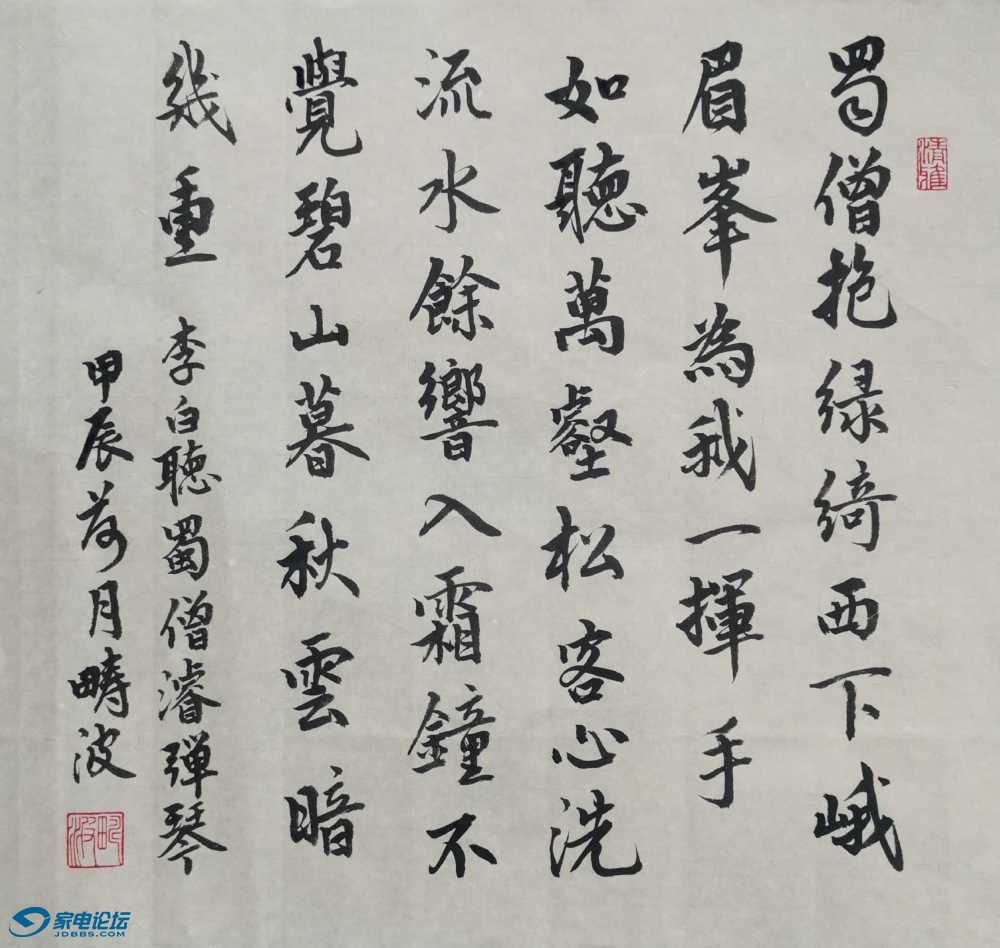 蜀僧抱绿绮西下峨
眉峯為我一揮手
如聽萬壑松客心洗
流水餘響入霜鐘不
覺碧山暮秋雲暗
幾重 李白聴蜀僧濬弾琴
甲辰荷月疇波
清雅
家电论坛
JDBBS.COM